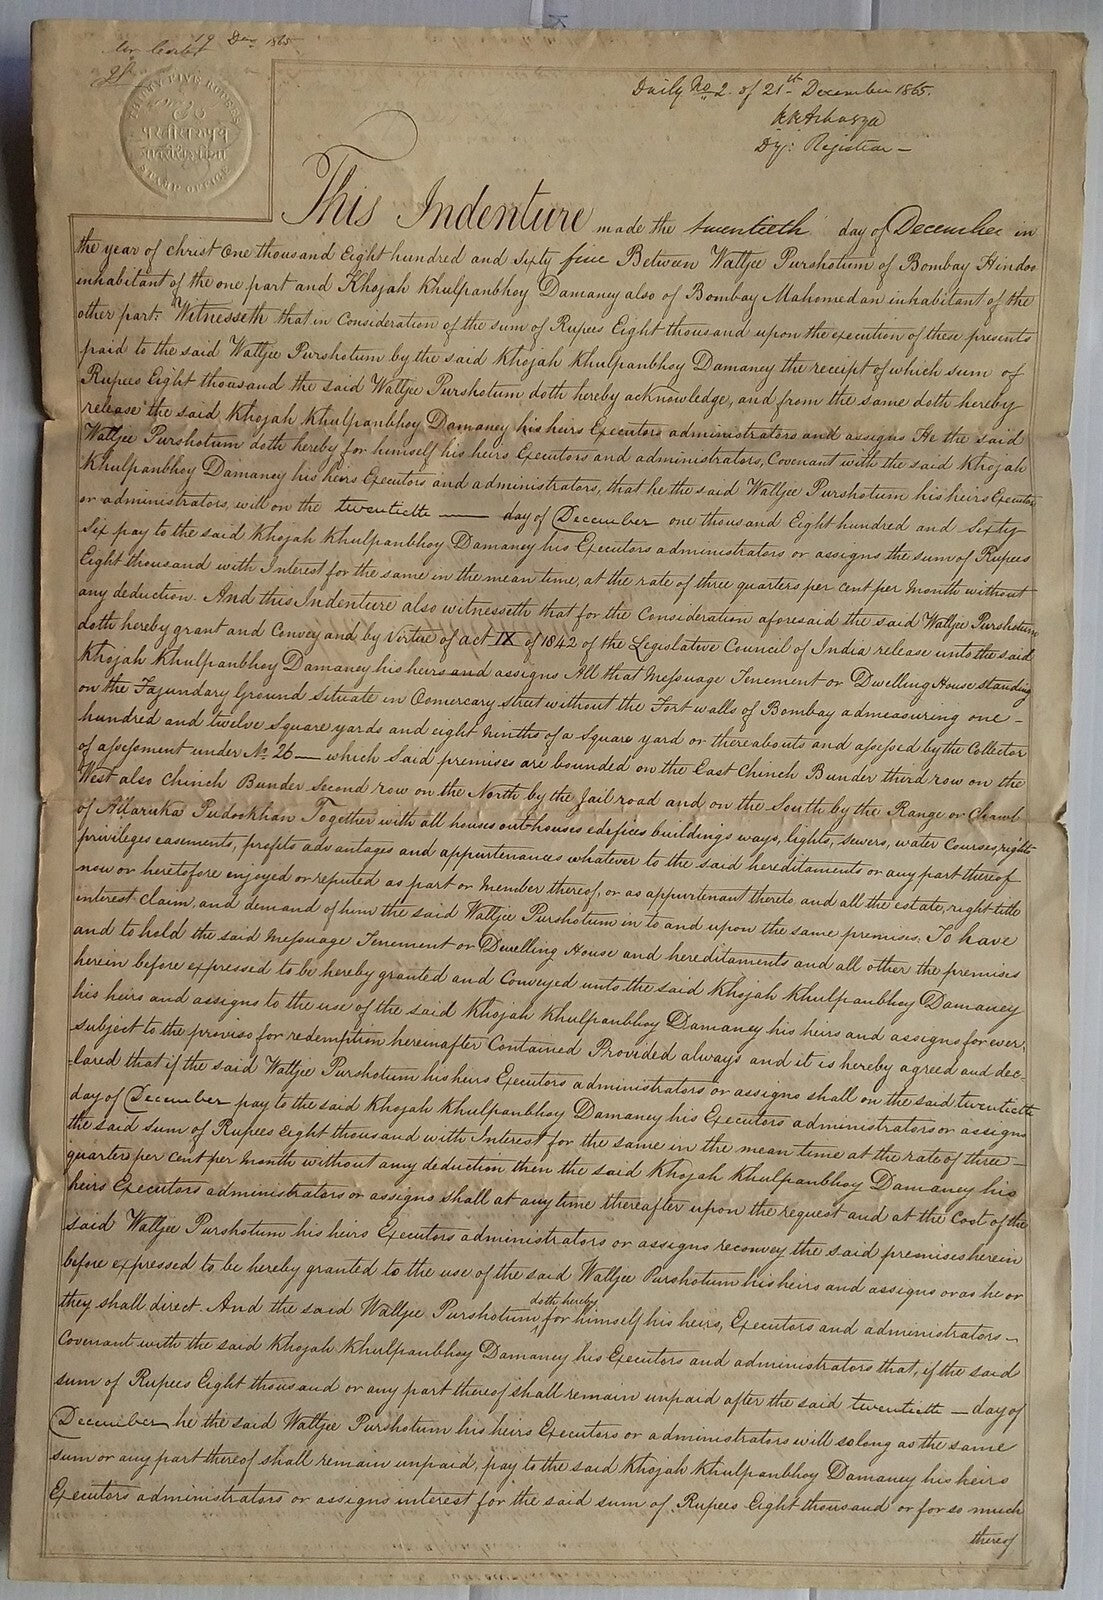 19 Dec 1865
THIRTY FIVE RUPEES
STAMP OFFICE
Daily No. 2. of 21st December 1865.
Dy: Registrar
This Indenture made the twentieth day of December in
the year of Christ One thousand Eight hundred and Sixty five Between Walljee Purshotum of Bombay Hindoo
inhabitant of the one part and Khojah Khulpanbhoy Damaney also of Bombay Mahomedan inhabitant of the
other part: Witnesseth that in Consideration of the sum of Rupees Eight thousand upon the execution of these presents
paid to the said Walljee Purshotum by the said Khojah Khulpanbhoy Damaney the receipt of which sum of
Rupees Eight thousand the said Walljee Purshotum doth hereby acknowledge, and from the same doth hereby
release the said Khojah Khulpanbhoy Damaney his heirs Executors administrators and assigns He the said
Walljee Purshotum doth hereby for himself his heirs Executors and administrators, Covenant with the said Khojah
Khulpanbhoy Damaney his heirs Executors and administrators, that he the said Walljee Purshotum his heirs Executors
or administrators, will on the twentieth — day of December one thousand Eight hundred and Sixty
Six pay to the said Khojah Khulpanbhoy Damaney his Executors administrators or assigns the sum of Rupees
Eight thousand with Interest for the same in the mean time, at the rate of three quarters per cent per Month without
any deduction. And this Indenture also witnesseth that for the Consideration aforesaid the said Walljee Purshotum
doth hereby grant and Convey and by Virtue of act IX of 1842 of the Legislative Council of India release unto the said
Khojah Khulpanbhoy Damaney his heirs and assigns All that Messuage Tenement or Dwelling House standing
on the Fazundary Ground Situate in Oomercary street without the Fort walls of Bombay admeasuring one -
hundred and twelve Square yards and eight Ninths of a Square yard or thereabouts and assessed by the Collector
of assessment under No. 26 — which said premises are bounded on the East Chinch Bunder third row on the
West also Chinch Bunder second row on the North by the Jail road and on the South by the Range or Chawl
of Allaruka Pudookhan Together with all houses outhouses edifices buildings ways, lights, sewers, water Courses, rights
privileges easments, profits advantages and appurtenances whatever to the said hereditaments or any part thereof
now or heretofore enjoyed or reputed as part or Member thereof, or as appurtenant thereto, and all the estate, right title
interest claim, and demand of him the said Walljee Purshotum in to and upon the same premises. To have
and to hold the said Messuage Tenement or Dwelling House and hereditaments and all other the premises
herein before expressed to be hereby granted and Conveyed unto the said Khojah Khulpanbhoy Damaney
his heirs and assigns to the use of the said Khojah Khulpanbhoy Damaney his heirs and assigns for ever,
subject to the proviso for redemption hereinafter Contained Provided always and it is hereby agreed and dec-
-lared that if the said Walljee Purshotum his heirs Executors administrators or assigns shall on the said twentieth
day of December pay to the said Khojah Khulpanbhoy Damaney his Executors administrators or assigns
the said sum of Rupees Eight thousand with Interest for the same in the mean time at the rate of three -
quarters per cent per Month without any deduction then the said Khojah Khulpanbhoy Damaney his
heirs Executors administrators or assigns shall at any time thereafter upon the request and at the Cost of the
said Walljee Purshotum his heirs Executors administrators or assigns reconvey the said premises herein
before expressed to be hereby granted to the use of the said Walljee Purshotum his heirs and assigns or as he or
they shall direct. And the said Walljee Purshotum doth hereby for himself his heirs, Executors and administrators -
Covenant with the said Khojah Khulpanbhoy Damaney his Executors and administrators that, if the said
sum of Rupees Eight thousand or any part thereof shall remain unpaid after the said twentieth — day of
December he the said Walljee Purshotum his heirs Executors or administrators will so long as the same
sum or any part thereof shall remain unpaid, pay to the said Khojah Khulpanbhoy Damaney his heirs
Executors administrators or assigns interest for the said sum of Rupees Eight thousand or for so much
thereof